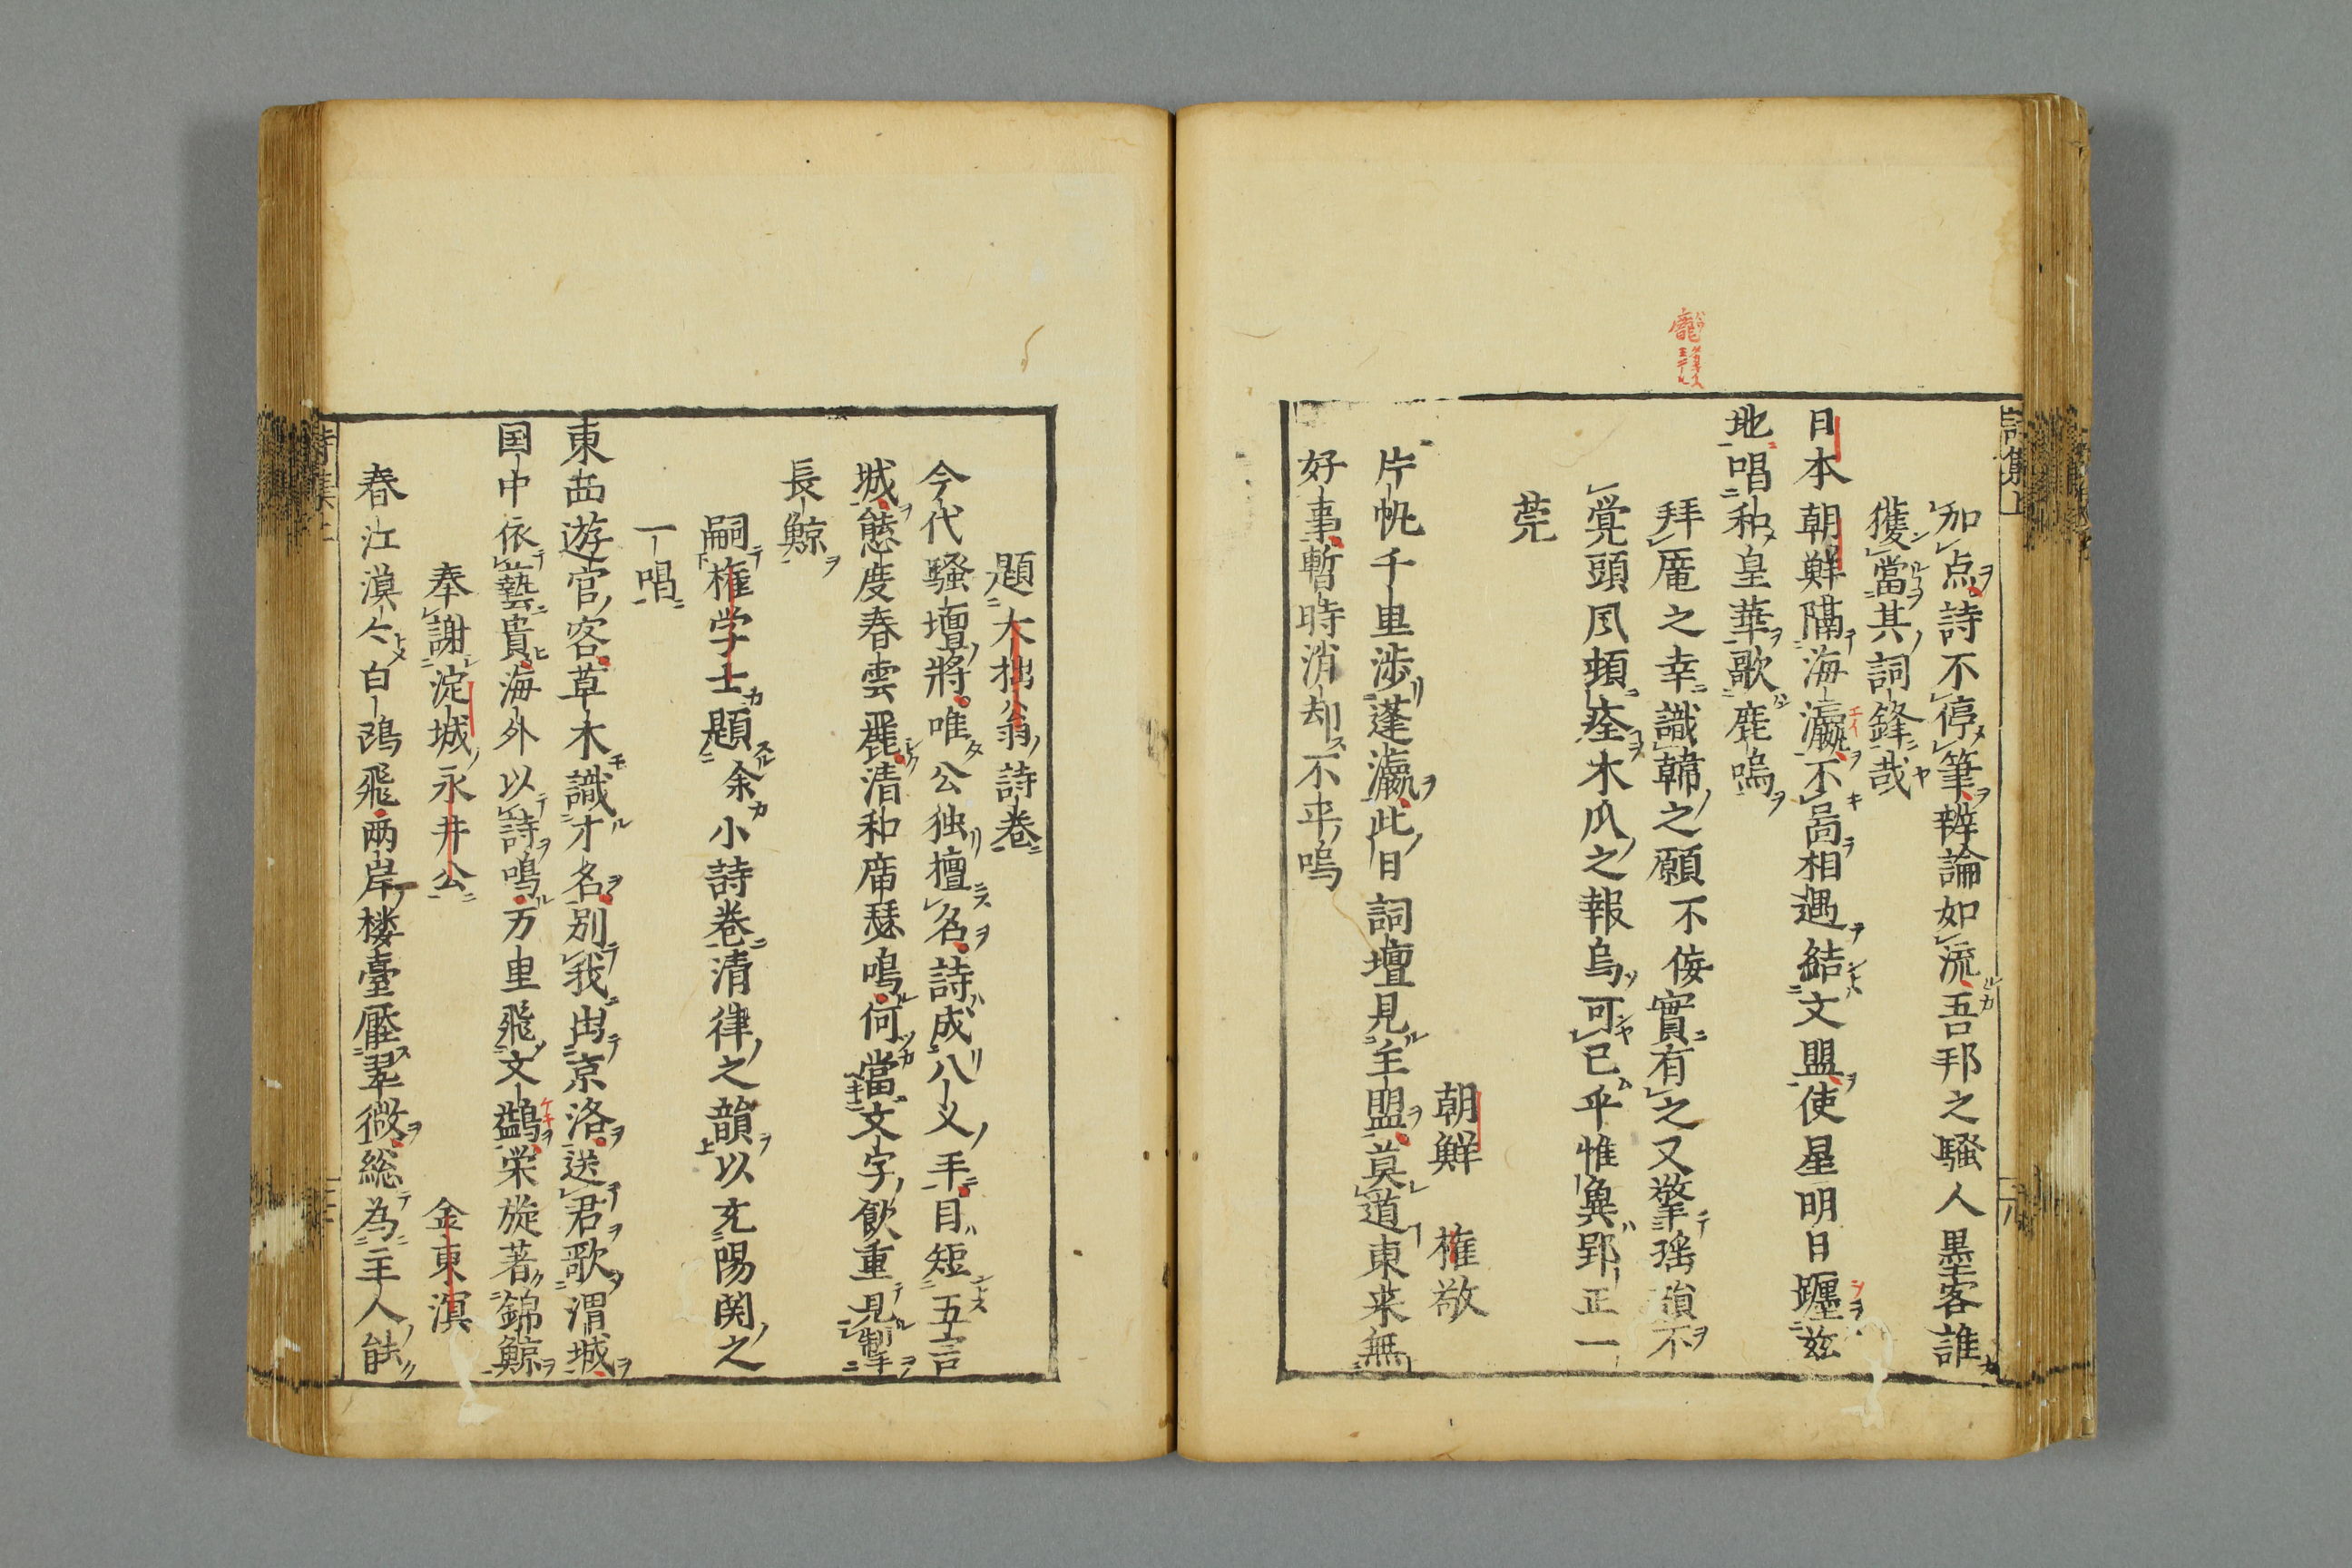 加点詩不停筆辨論如流吾邦之騷人墨客誰
獲當其詞鋒哉
日本朝鮮隔海瀛不啚相遇結文盟使星明日躔茲
地唱和皇華歌鹿鳴
拜庵之幸識韓之願不侫實有之又擎瑤韻不
覚頭风頓痊木瓜之報烏可已乎惟兾郢正一
莞
朝鮮 權敬
片帆千里渉蓬瀛此日詞壇見主盟莫道東来無
好事暫時消却不平鳴
題大拙翁詩卷
今代騷壇將唯公独擅名詩成八乂手目短五言
城態度春雲麗清和席瑟鳴何當文字飲重見掣
長鯨
嗣權学士題余小詩卷清律之韻以充陽関之
一唱
東西遊官客草木識才名別我出京洛送君歌渭城
国中依藝貴海外以詩鳴万里飛文鷁栄旋著錦鯨
奉謝淀城永井公
金東溟
春江漠々白鴎飛両岸楼臺壓翠微総為主人能
詩集上
詩集上